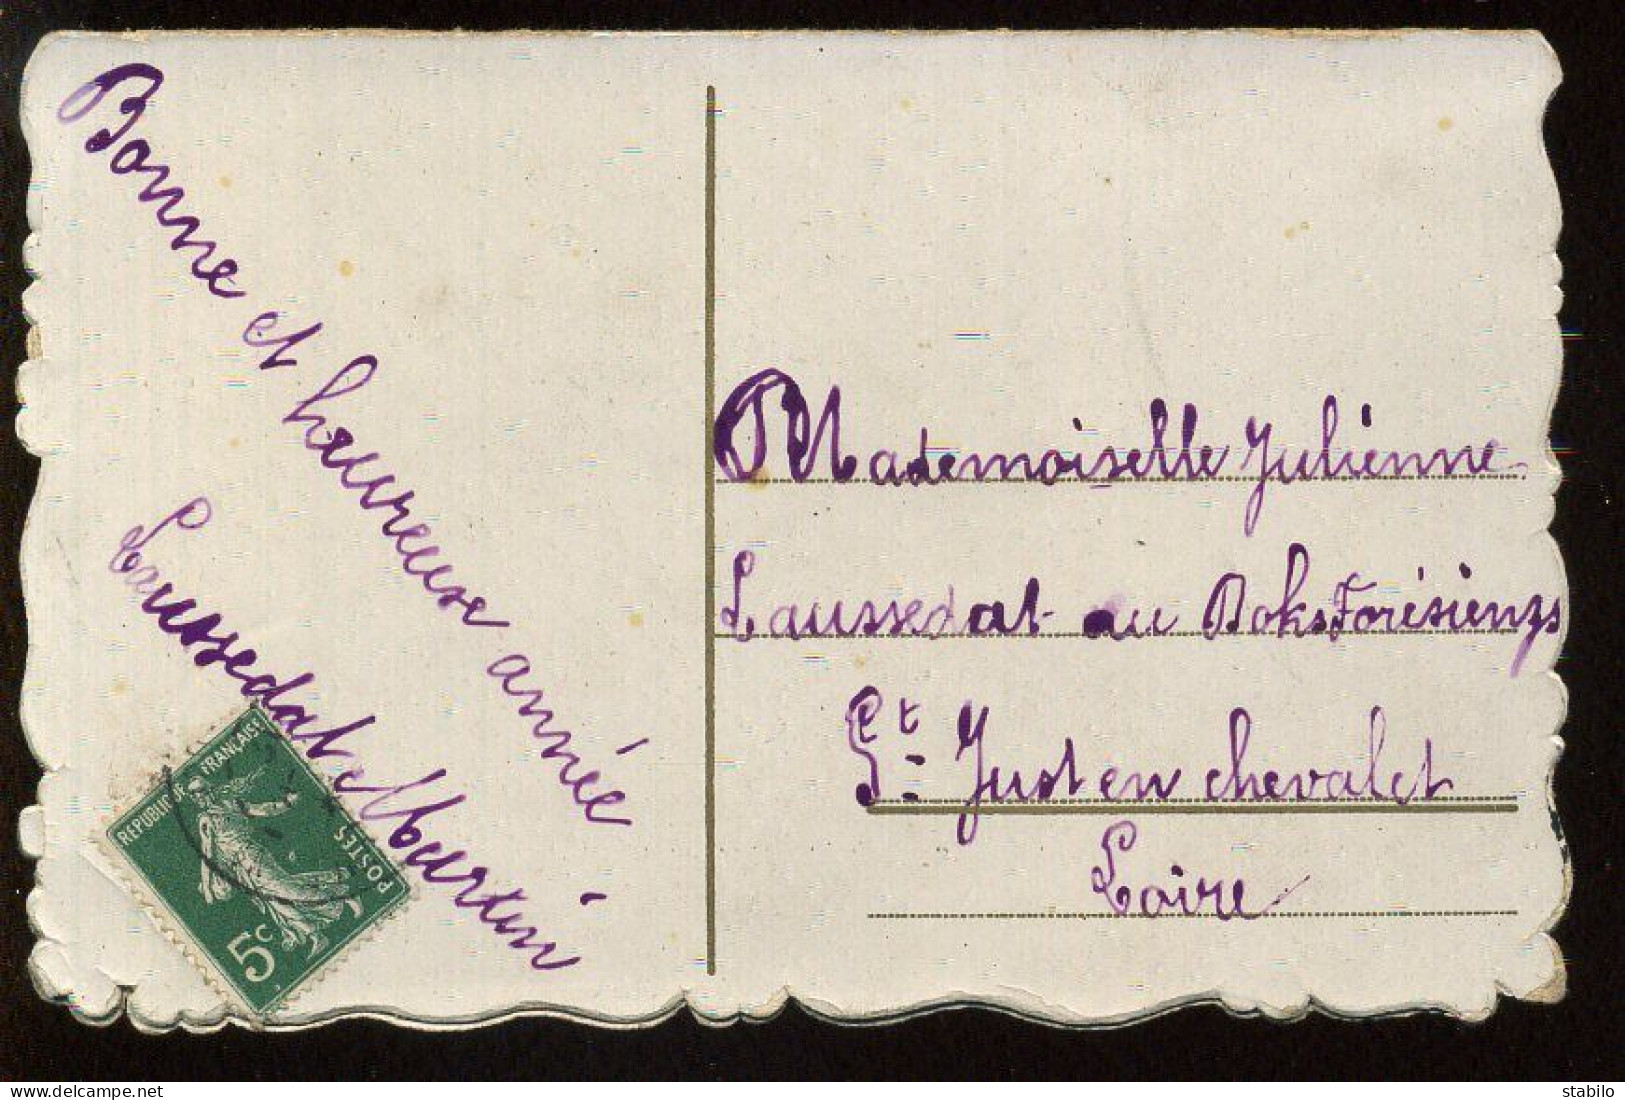 Bonne et heureuse année
Laussedat Martin
RÉPUBLIQUE FRANÇAISE
POSTES
5c
Mademoiselle Julienne
Laussedat au Doks Forésiengs
St. Just en chevalet
Loire
www.delcampe.net
stabilo